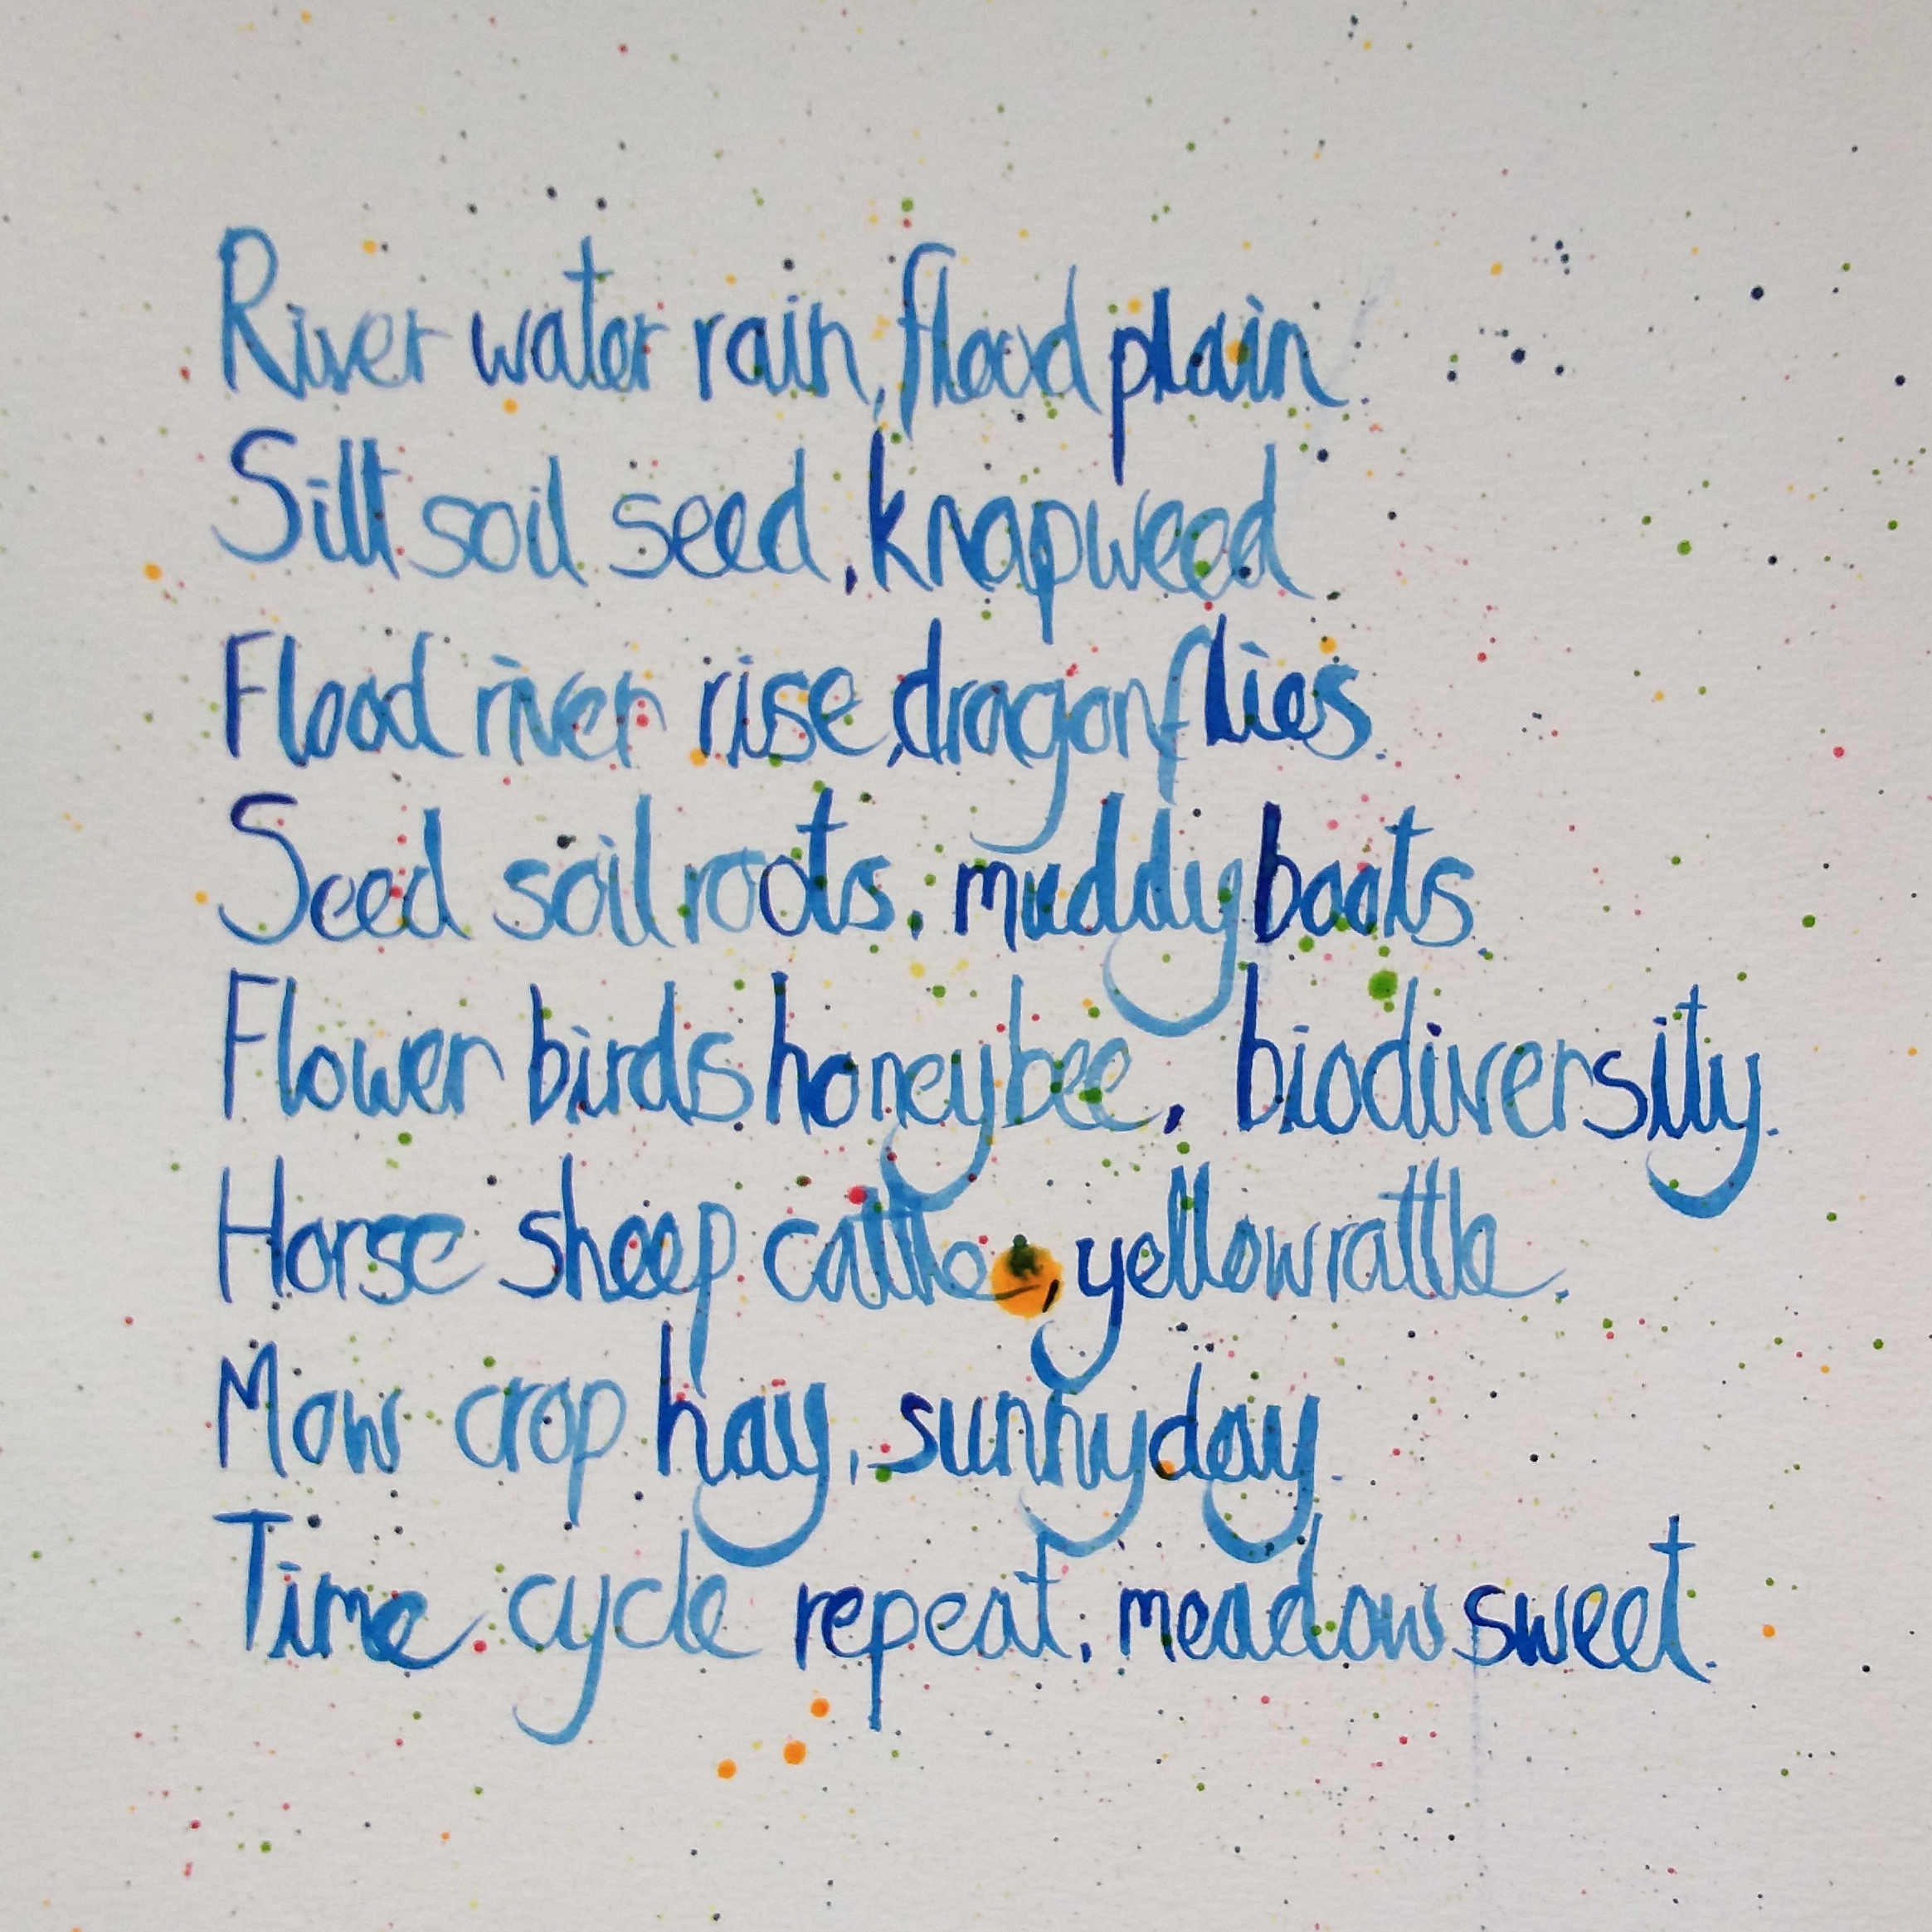 River water rain, flood plain.
Silt soil seed, knapweed.
Flood river rise, dragonflies.
Seed soil roots, muddy boots.
Flower birds honeybee, biodiversity.
Horse sheep cattle, yellow rattle.
Mow crop hay, sunny day.
Time cycle repeat, meadowsweet.